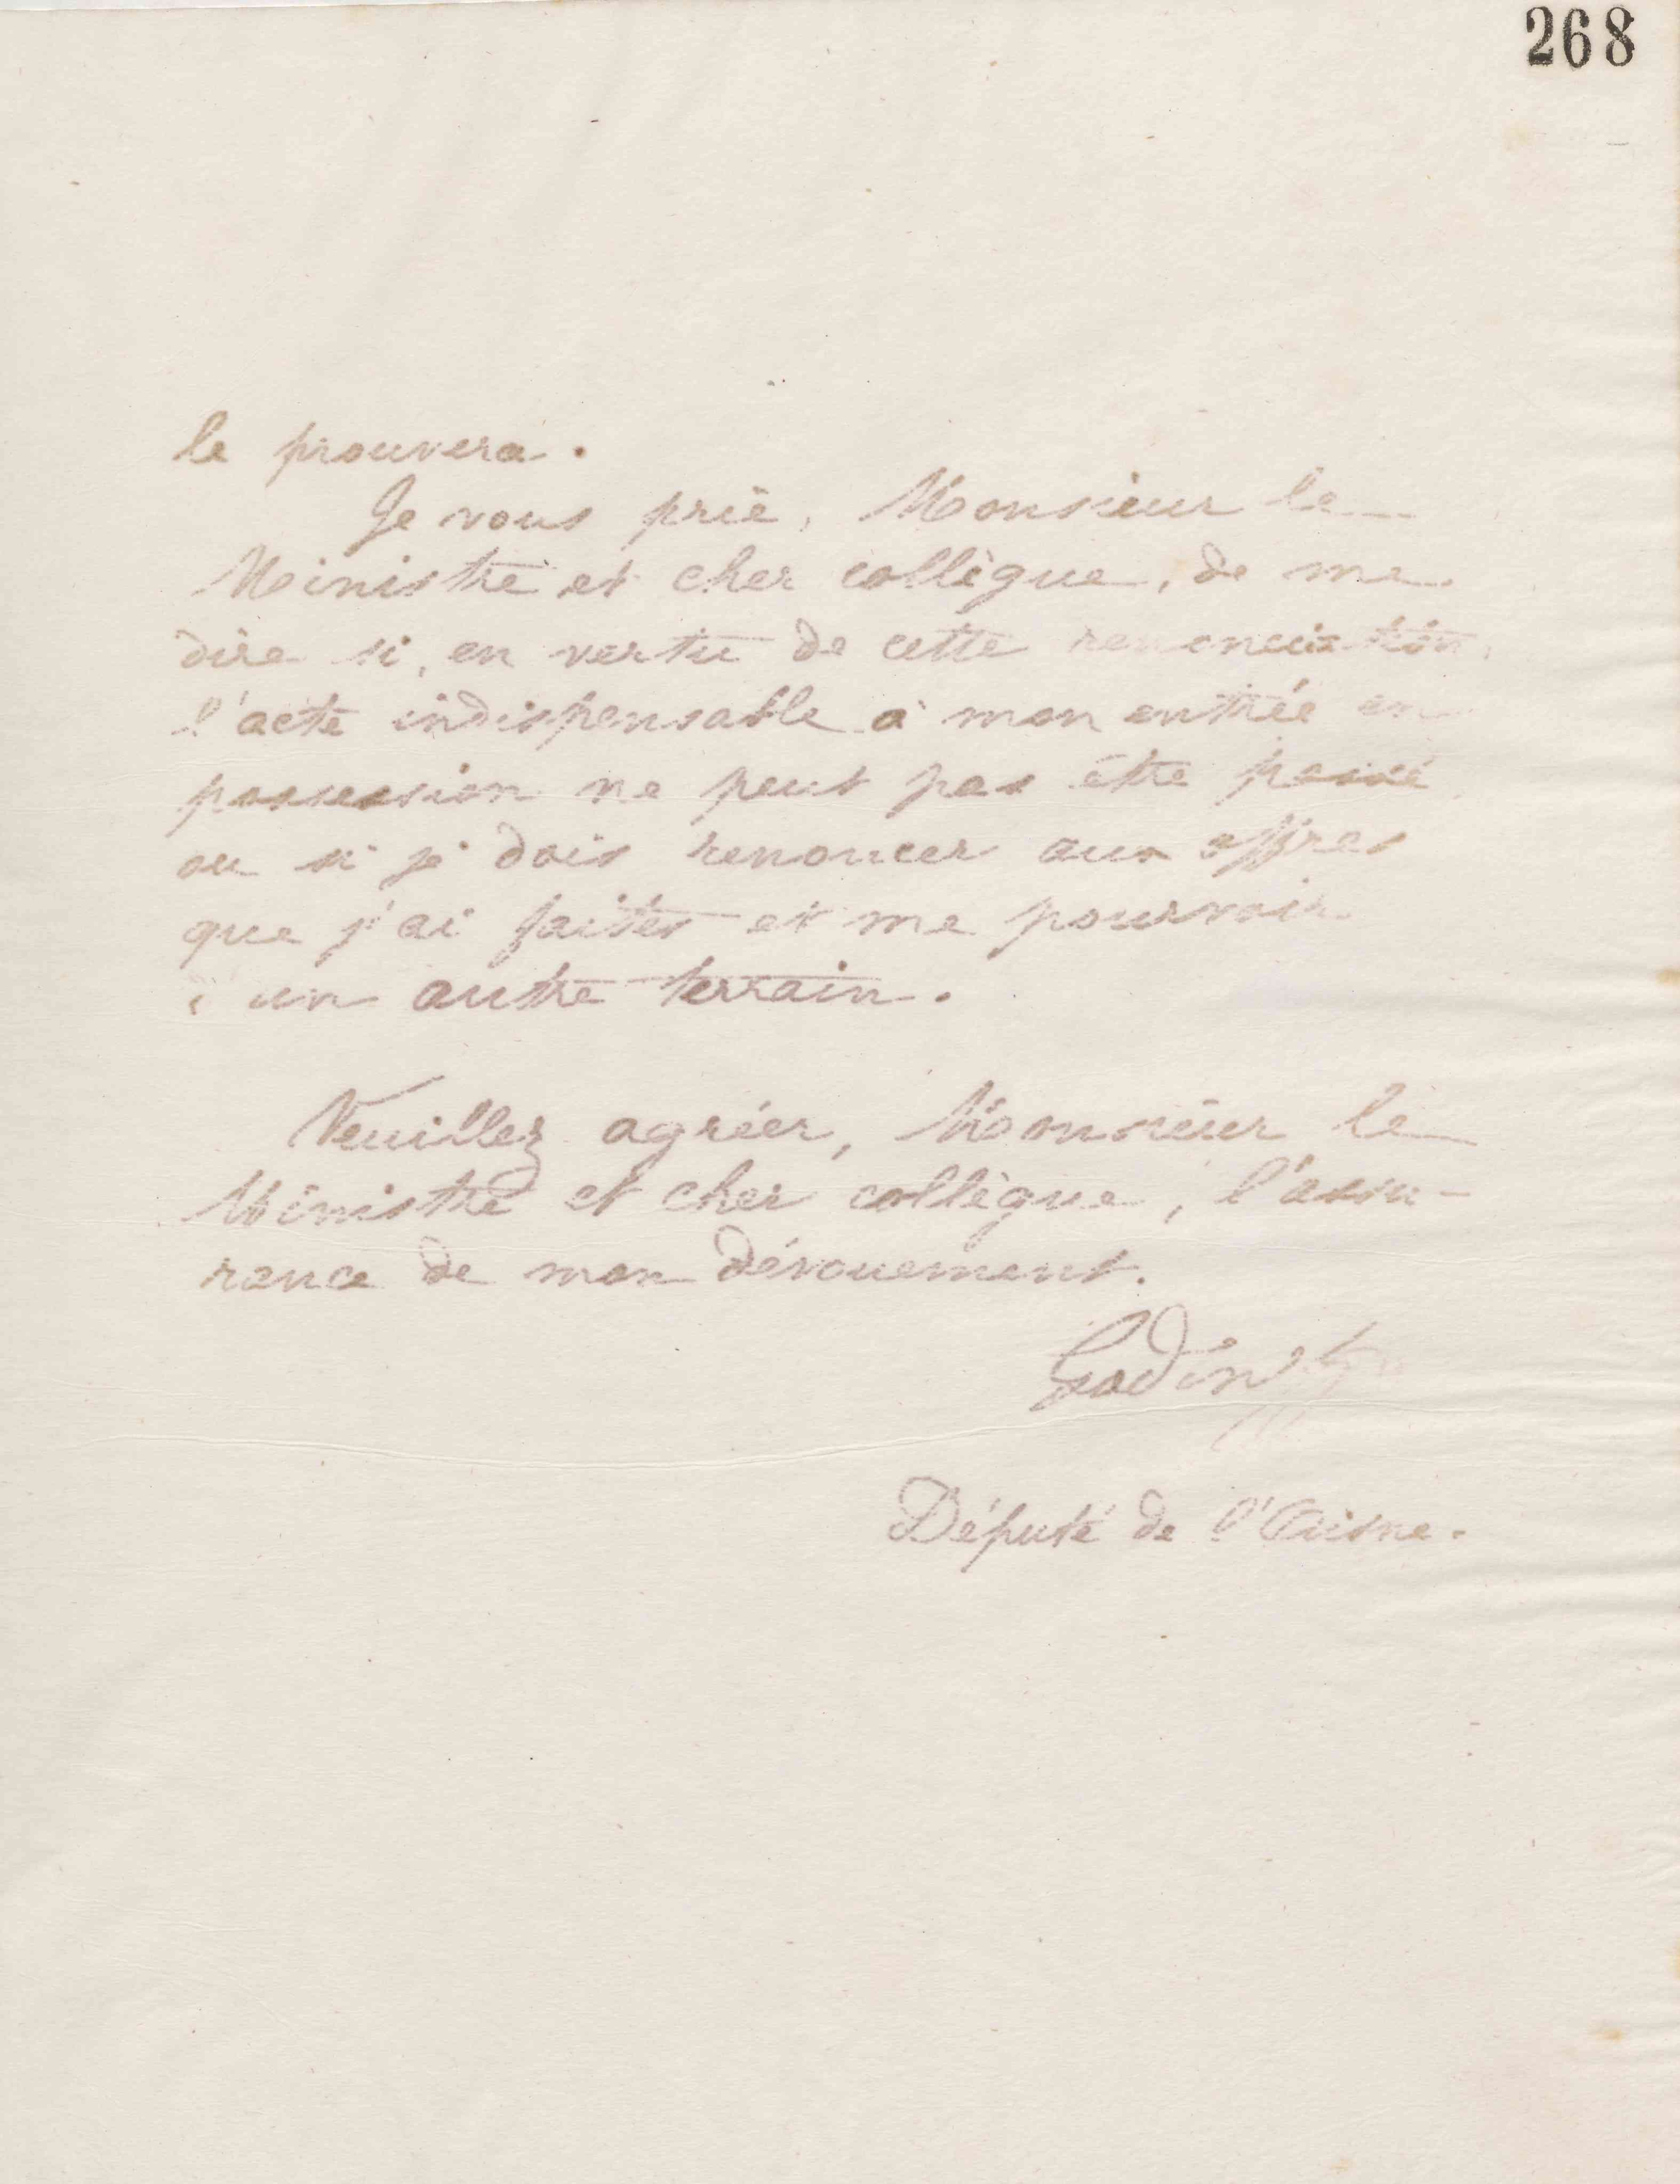 268
le prouvera.
Je vous prie, Monsieur le
Ministre et cher collègue, de me
dire si, en vertu de cette renonciation,
l'acte indispensable à mon entrée en
possession ne peut pas être passé
ou si je dois renoncer aux offres
que j'ai faites et me pourvoir
à un autre terrain.
Veuillez agréer, Monsieur le
Ministre et cher collègue, l'assu-
rance de mon dévouement.
Godin
Député de l'Aisne.